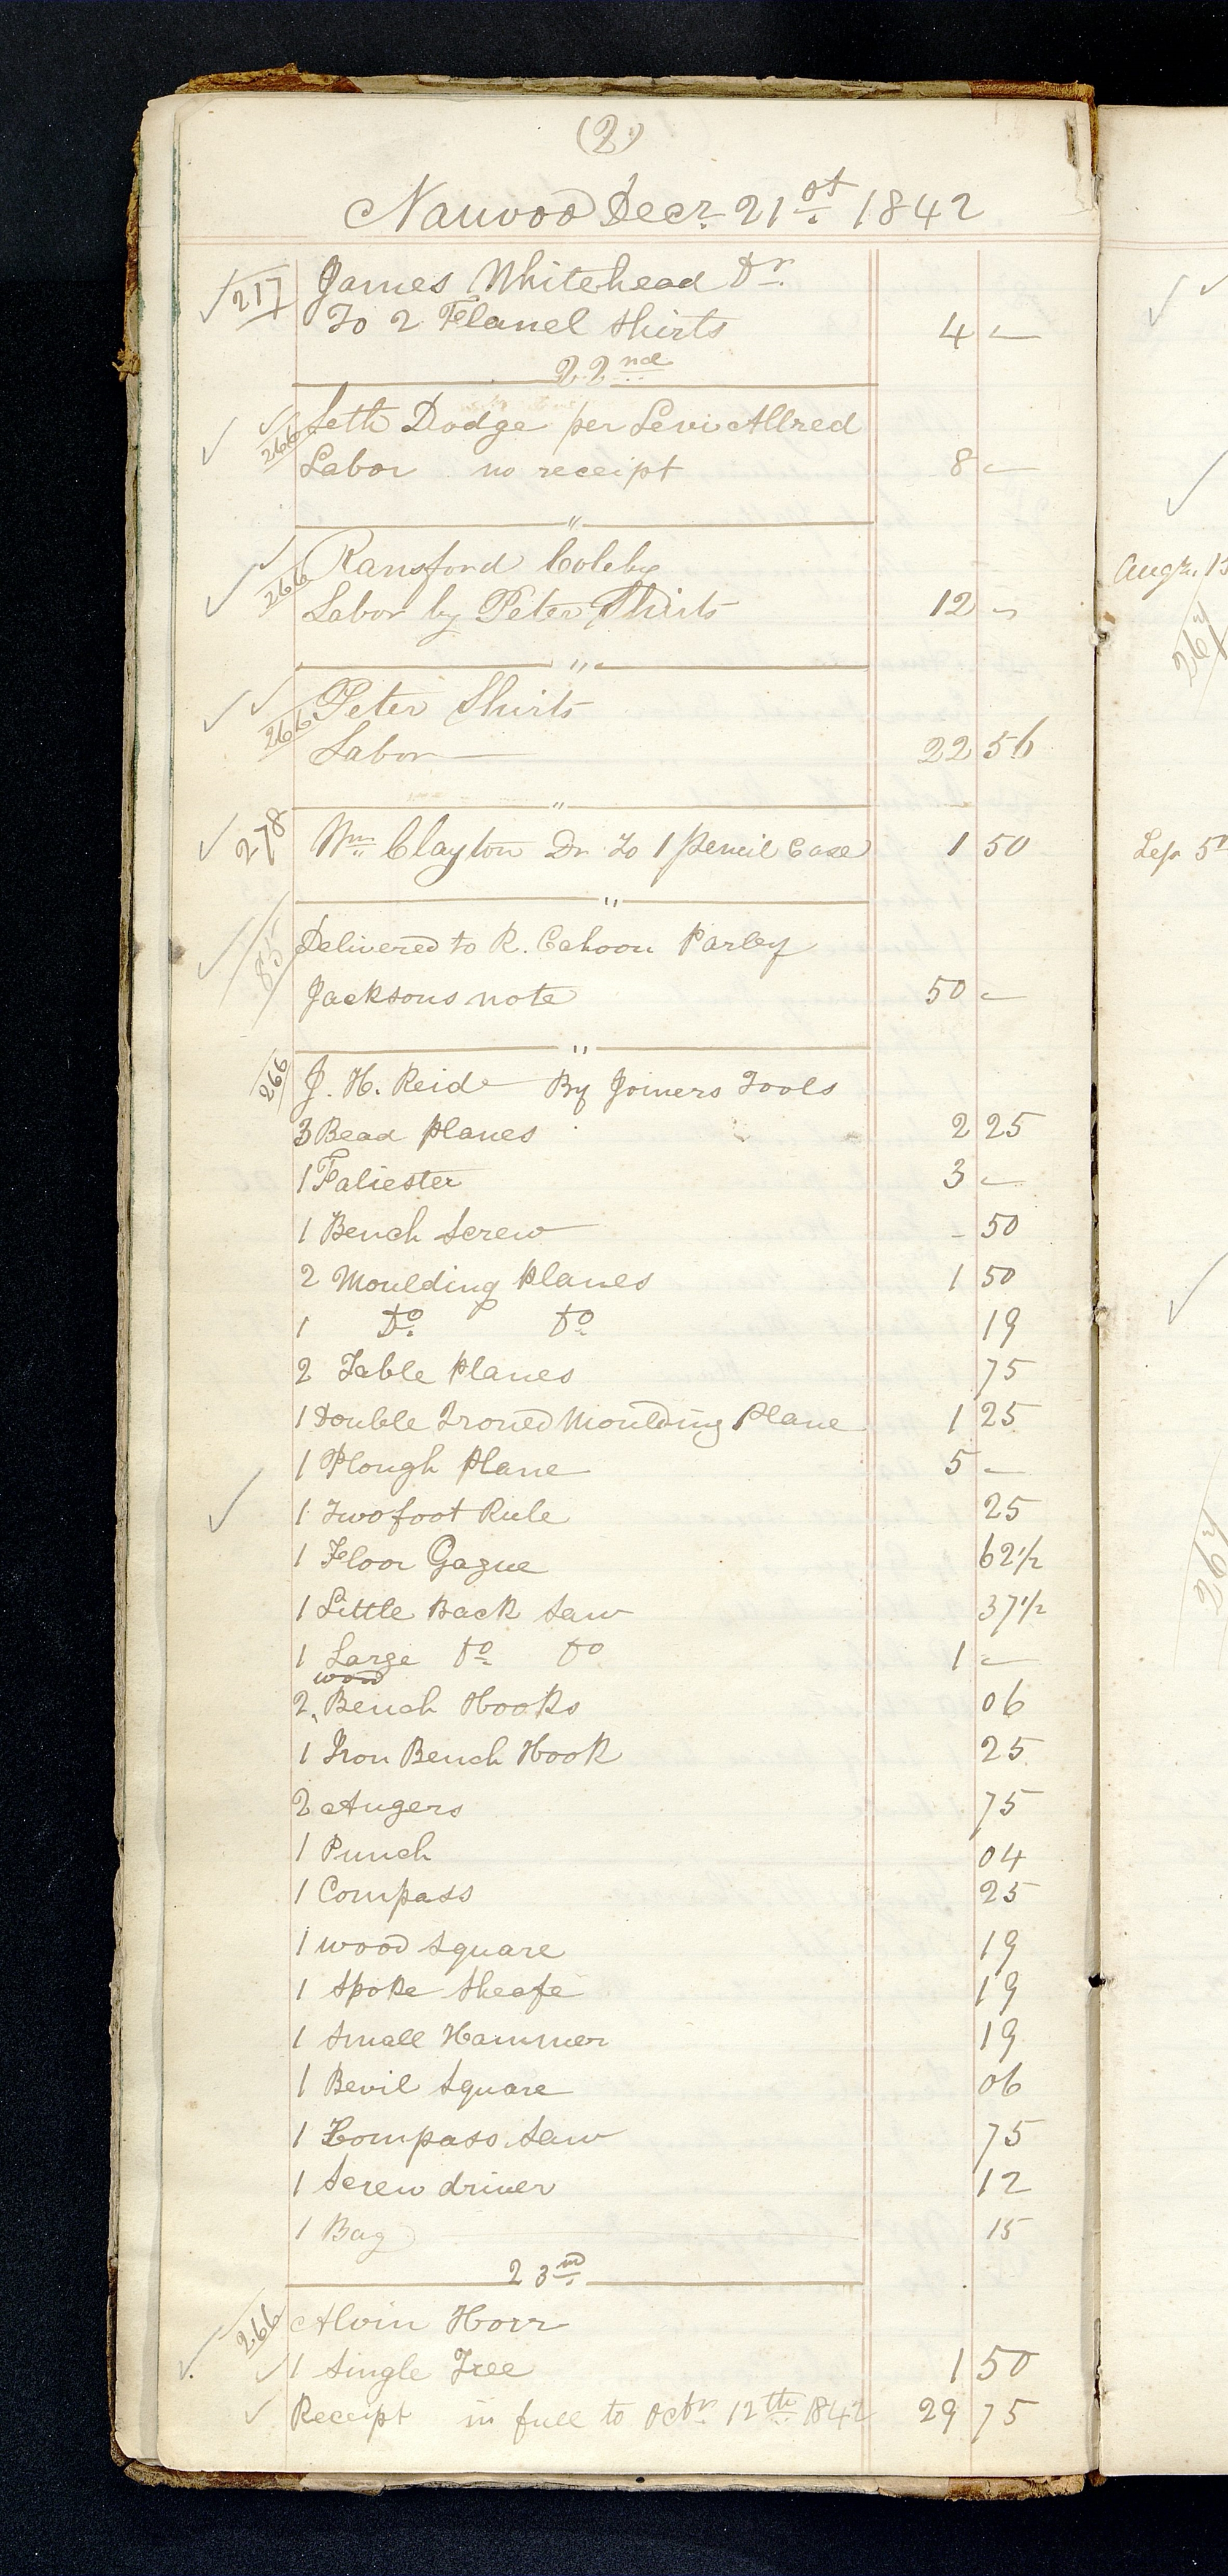 (2)
Nauvoo Decr. 21st. 1842
217 James Whitehead Dr.
To 2 Flanel Shirts 4 —
22nd
266 Seth Dodge per Levi Allred
Labor no receipt 8 —
"
266 Ransford Colby
Labor by Peter Shirts 12 —
"
266 Peter Shirts
Labor 22 56
"
278 Wm. Clayton Dr To 1 Pencil Case 1 50
"
85 Delivered to R. Cahoon Parley
Jacksons note 50 —
"
266 J. H. Reid By Joiners Tools
3 Bead Planes 2 25
1 Faliester 3 —
1 Bench Screw - 50
2 Moulding Planes 1 50
1 Do. Do. 19
2 Table Planes 75
1 Double Ironed Moulding Plane 1 25
1 Plough Plane 5 —
1 Two foot Rule 25
1 Floor Gague 62 1/2
1 Little Back Saw 37 1/2
1 Large Do. Do 1 —
wood
2 Bench Hooks 06
1 Iron Bench Hook 25
2 Augers 75
1 Punch 04
1 Compass 25
1 wood Square 19
1 Spoke Sheafe 19
1 Small Hammer 19
1 Bevil Square 06
1 Compass Saw 75
1 Screw driver 12
1 Bag 15
23rd.
266 Alvin Horr
1 Single Tree 1 50
Receipt in full to Octr. 12th. 1842 29 75
Augt. 13
267
Sep 5
267